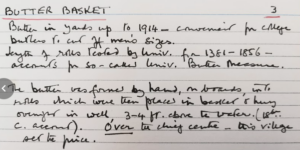 BUTTER BASKET 3
Butter in yards up to 1914 – convenient for college
butlers to cut off men's sizes.
length of rolls tested by Univ. for 1381–1856 –
accounts for so-called Univ. Butter Measure.
The butter was formed by hand, on boards, into
rolls which were then placed in basket & hung
overnight in well, 3-4 ft. above the water.
c. account). Over the ... centre – this village
set the price.